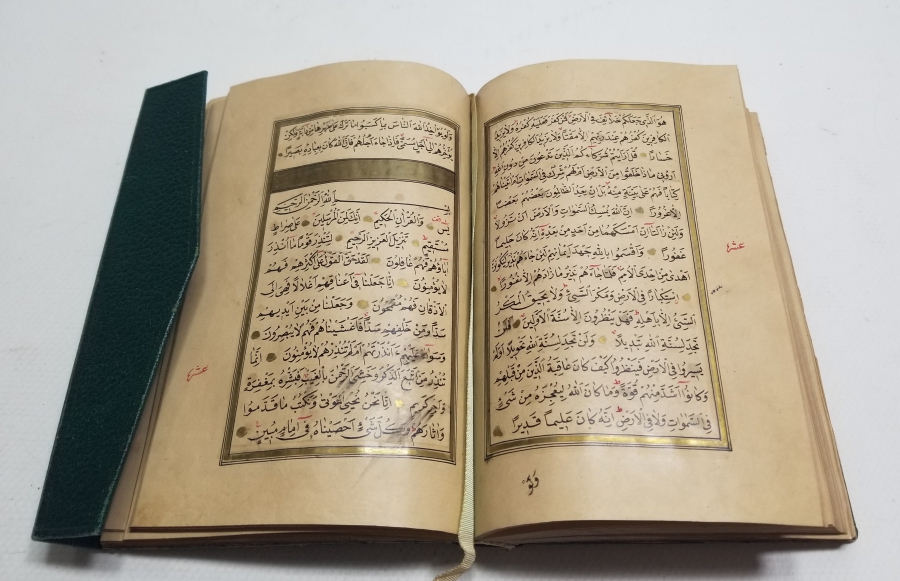 هُوَ الَّذِي جَعَلَكُمْ خَلَائِفَ فِي الْاَرْضِ فَمَنْ كَفَرَ فَعَلَيْهِ كُفْرُهُ وَلَا يَزِيدُ
الْكَافِرِينَ كُفْرُهُمْ عِنْدَ رَبِّهِمْ اِلَّا مَقْتًا وَلَا يَزِيدُ الْكَافِرِينَ كُفْرُهُمْ اِلَّا
خَسَارًا قُلْ اَرَاَيْتُمْ شُرَكَاءَكُمُ الَّذِينَ تَدْعُونَ مِنْ دُونِ اللّٰهِ
اَرُونِي مَاذَا خَلَقُوا مِنَ الْاَرْضِ اَمْ لَهُمْ شِرْكٌ فِي السَّمٰوَاتِ اَمْ اٰتَيْنَاهُمْ
كِتَابًا فَهُمْ عَلٰى بَيِّنَةٍ مِنْهُ بَلْ اِنْ يَعِدُ الظَّالِمُونَ بَعْضُهُمْ بَعْضًا
اِلَّا غُرُورًا اِنَّ اللّٰهَ يُمْسِكُ السَّمٰوَاتِ وَالْاَرْضَ اَنْ تَزُولَا
وَلَئِنْ زَالَتَا اِنْ اَمْسَكَهُمَا مِنْ اَحَدٍ مِنْ بَعْدِهِ اِنَّهُ كَانَ حَلِيمًا
غَفُورًا وَاَقْسَمُوا بِاللّٰهِ جَهْدَ اَيْمَانِهِمْ لَئِنْ جَاءَهُمْ نَذِيرٌ لَيَكُونُنَّ
اَهْدٰى مِنْ اِحْدَى الْاُمَمِ فَلَمَّا جَاءَهُمْ نَذِيرٌ مَا زَادَهُمْ اِلَّا نُفُورًا
اسْتِكْبَارًا فِي الْاَرْضِ وَمَكْرَ السَّيِّئِ وَلَا يَحِيقُ الْمَكْرُ
السَّيِّئُ اِلَّا بِاَهْلِهِ فَهَلْ يَنْظُرُونَ اِلَّا سُنَّةَ الْاَوَّلِينَ فَلَنْ
تَجِدَ لِسُنَّةِ اللّٰهِ تَبْدِيلًا وَلَنْ تَجِدَ لِسُنَّةِ اللّٰهِ تَحْوِيلًا اَوَلَمْ
يَسِيرُوا فِي الْاَرْضِ فَيَنْظُرُوا كَيْفَ كَانَ عَاقِبَةُ الَّذِينَ مِنْ قَبْلِهِمْ
وَكَانُوا اَشَدَّ مِنْهُمْ قُوَّةً وَمَا كَانَ اللّٰهُ لِيُعْجِزَهُ مِنْ شَيْءٍ
فِي السَّمٰوَاتِ وَلَا فِي الْاَرْضِ اِنَّهُ كَانَ عَلِيمًا قَدِيرًا
عشر
وَلَوْ
وَلَوْ يُؤَاخِذُ اللّٰهُ النَّاسَ بِمَا كَسَبُوا مَا تَرَكَ عَلٰى ظَهْرِهَا مِنْ دَابَّةٍ وَلٰكِنْ
يُؤَخِّرُهُمْ اِلٰى اَجَلٍ مُسَمًّى فَاِذَا جَاءَ اَجَلُهُمْ فَاِنَّ اللّٰهَ كَانَ بِعِبَادِهِ بَصِيرًا
بِسْمِ اللّٰهِ الرَّحْمٰنِ الرَّحِيمِ
يٰسٓ وَالْقُرْاٰنِ الْحَكِيمِ اِنَّكَ لَمِنَ الْمُرْسَلِينَ عَلٰى صِرَاطٍ
مُسْتَقِيمٍ تَنْزِيلَ الْعَزِيزِ الرَّحِيمِ لِتُنْذِرَ قَوْمًا مَا اُنْذِرَ
اٰبَاؤُهُمْ فَهُمْ غَافِلُونَ لَقَدْ حَقَّ الْقَوْلُ عَلٰى اَكْثَرِهِمْ فَهُمْ
لَا يُؤْمِنُونَ اِنَّا جَعَلْنَا فِي اَعْنَاقِهِمْ اَغْلَالًا فَهِيَ اِلَى
الْاَذْقَانِ فَهُمْ مُقْمَحُونَ وَجَعَلْنَا مِنْ بَيْنِ اَيْدِيهِمْ
سَدًّا وَمِنْ خَلْفِهِمْ سَدًّا فَاَغْشَيْنَاهُمْ فَهُمْ لَا يُبْصِرُونَ
وَسَوَاءٌ عَلَيْهِمْ ءَاَنْذَرْتَهُمْ اَمْ لَمْ تُنْذِرْهُمْ لَا يُؤْمِنُونَ اِنَّمَا
تُنْذِرُ مَنِ اتَّبَعَ الذِّكْرَ وَخَشِيَ الرَّحْمٰنَ بِالْغَيْبِ فَبَشِّرْهُ بِمَغْفِرَةٍ
وَاَجْرٍ كَرِيمٍ اِنَّا نَحْنُ نُحْيِي الْمَوْتٰى وَنَكْتُبُ مَا قَدَّمُوا
وَاٰثَارَهُمْ وَكُلَّ شَيْءٍ اَحْصَيْنَاهُ فِي اِمَامٍ مُبِينٍ
عشر